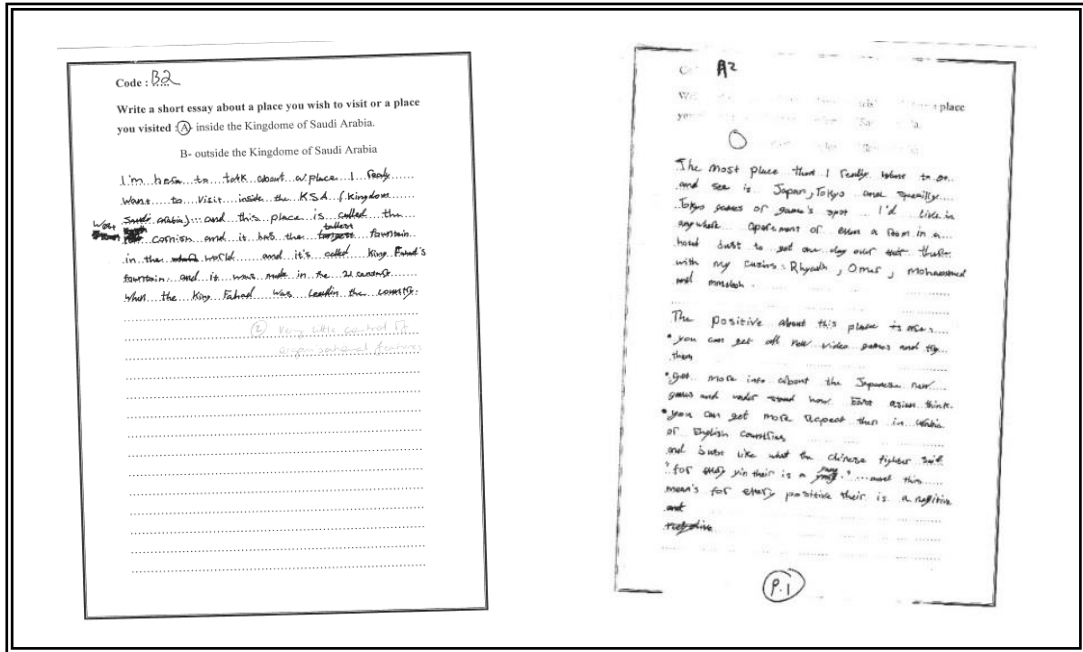 Code : B2
Write a short essay about a place you wish to visit or a place
you visited : A- inside the Kingdome of Saudi Arabia.
B- outside the Kingdome of Saudi Arabia
I'm here to talk about a place I really
want to visit inside the KSA (Kingdom
Saudi arabia) and this place is called the
cornish and it has the tallest fountain
in the world and it's called King Fahad's
fountain and it was made in the 21 century
when the King Fahad was leadin the country.
(2) very little control of
organisational features
A2
place
The most place that I really want to go
and see is Japan, Tokyo and specilly
Tokyo games or game's spot I'd live in
any where aparement or even a room in a
hotel Just to get one day over there
with my cuzins : Rhyadh, Omar, Mohammed
and
The positive about this place is
• you can get all new video games and try
them
• get more into about the Japanese new
games and under stand how East asian think.
• you can get more respect then in
or English countries
and Just like what the chinese fighter said
"for every yin their is a yang." and this
mean's for every positive their is a negitive
and
P.1